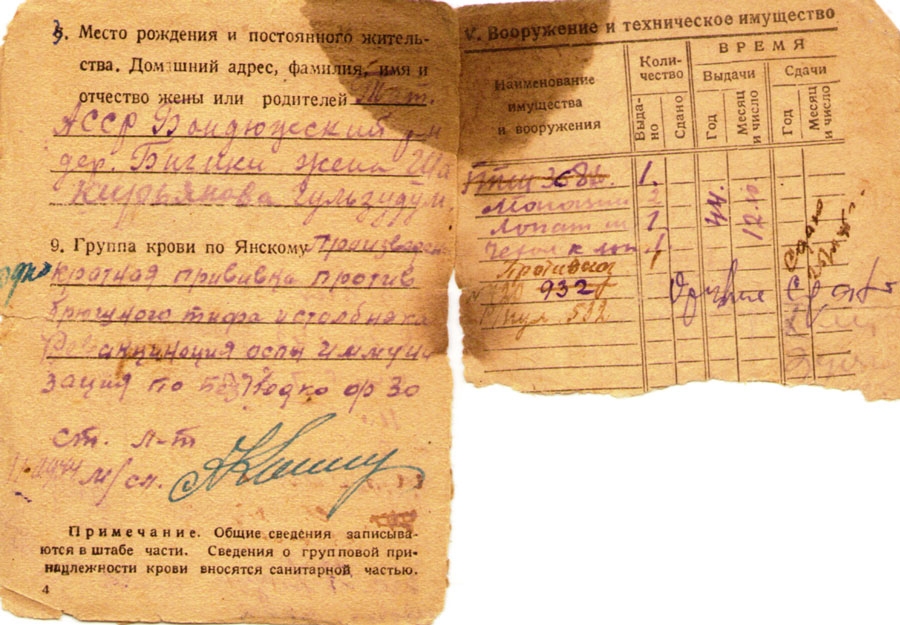 8. Место рождения и постоянного житель-
ства. Домашний адрес, фамилия, имя и
отчество жены или родителей Тат.
АССР Бондюжский р-н
дер. Бигики жена Ша
кирьянова Гульзудум
9. Группа крови по Янскому Произведен
одно
кратная прививка против
брюшного тифа и столбняка
Ревакцинация оспы иммуни
зация по
ст. л-т
1944 м/сл.
Примечание. Общие сведения записыва-
ются в штабе части. Сведения о групповой при-
надлежности крови вносятся санитарной частью.
4
V. Вооружение и техническое имущество
Наименование
имущества
и вооружения
Коли-
чество
ВРЕМЯ
Выдачи
Сдачи
Выда-
но
Сдано
Год
Месяц
и число
Год
Месяц
и число
1.
Магазин 2
Лопат 1
Чехол к лоп 1
44
12.10
Сдано
Противогаз
932
Оружие сдат
592